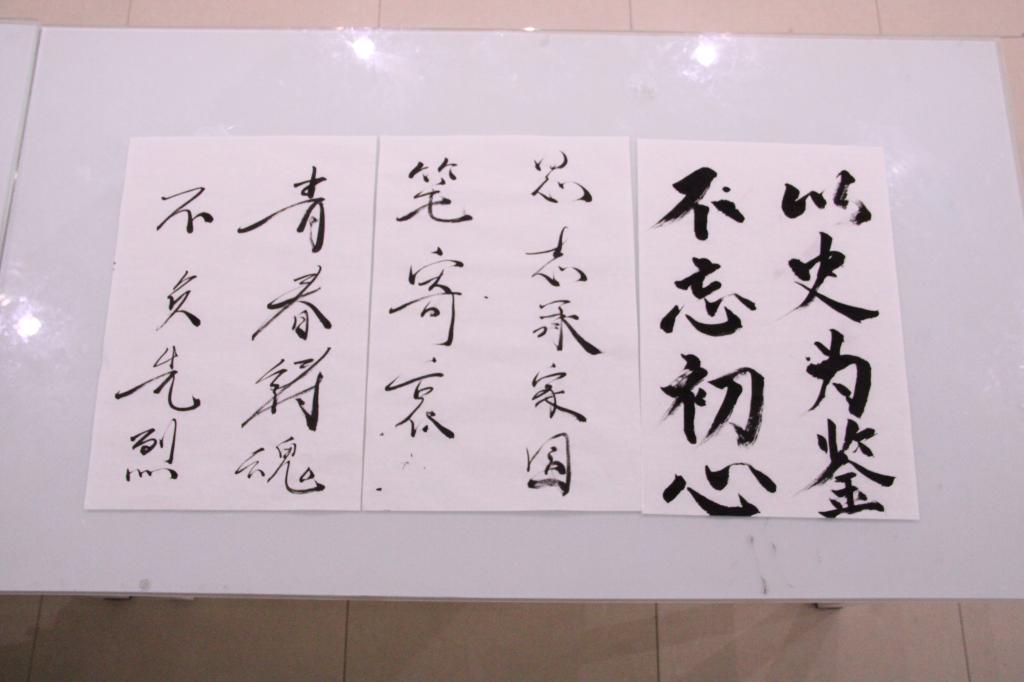 以史为鉴
不忘初心
志承家国
笔寄哀
青春铸魂
不负先烈